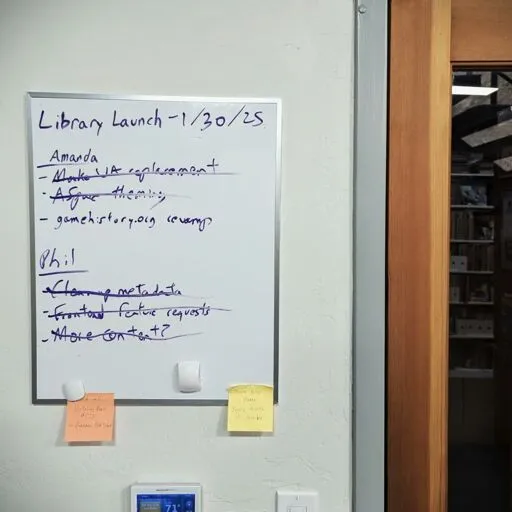 Library Launch - 1/30/25
Amanda
- Make UA replacement
- ASpace theming
- gamehistory.org revamp
Phil
- Cleanup metadata
- Frontend feature requests
- More content?
71°